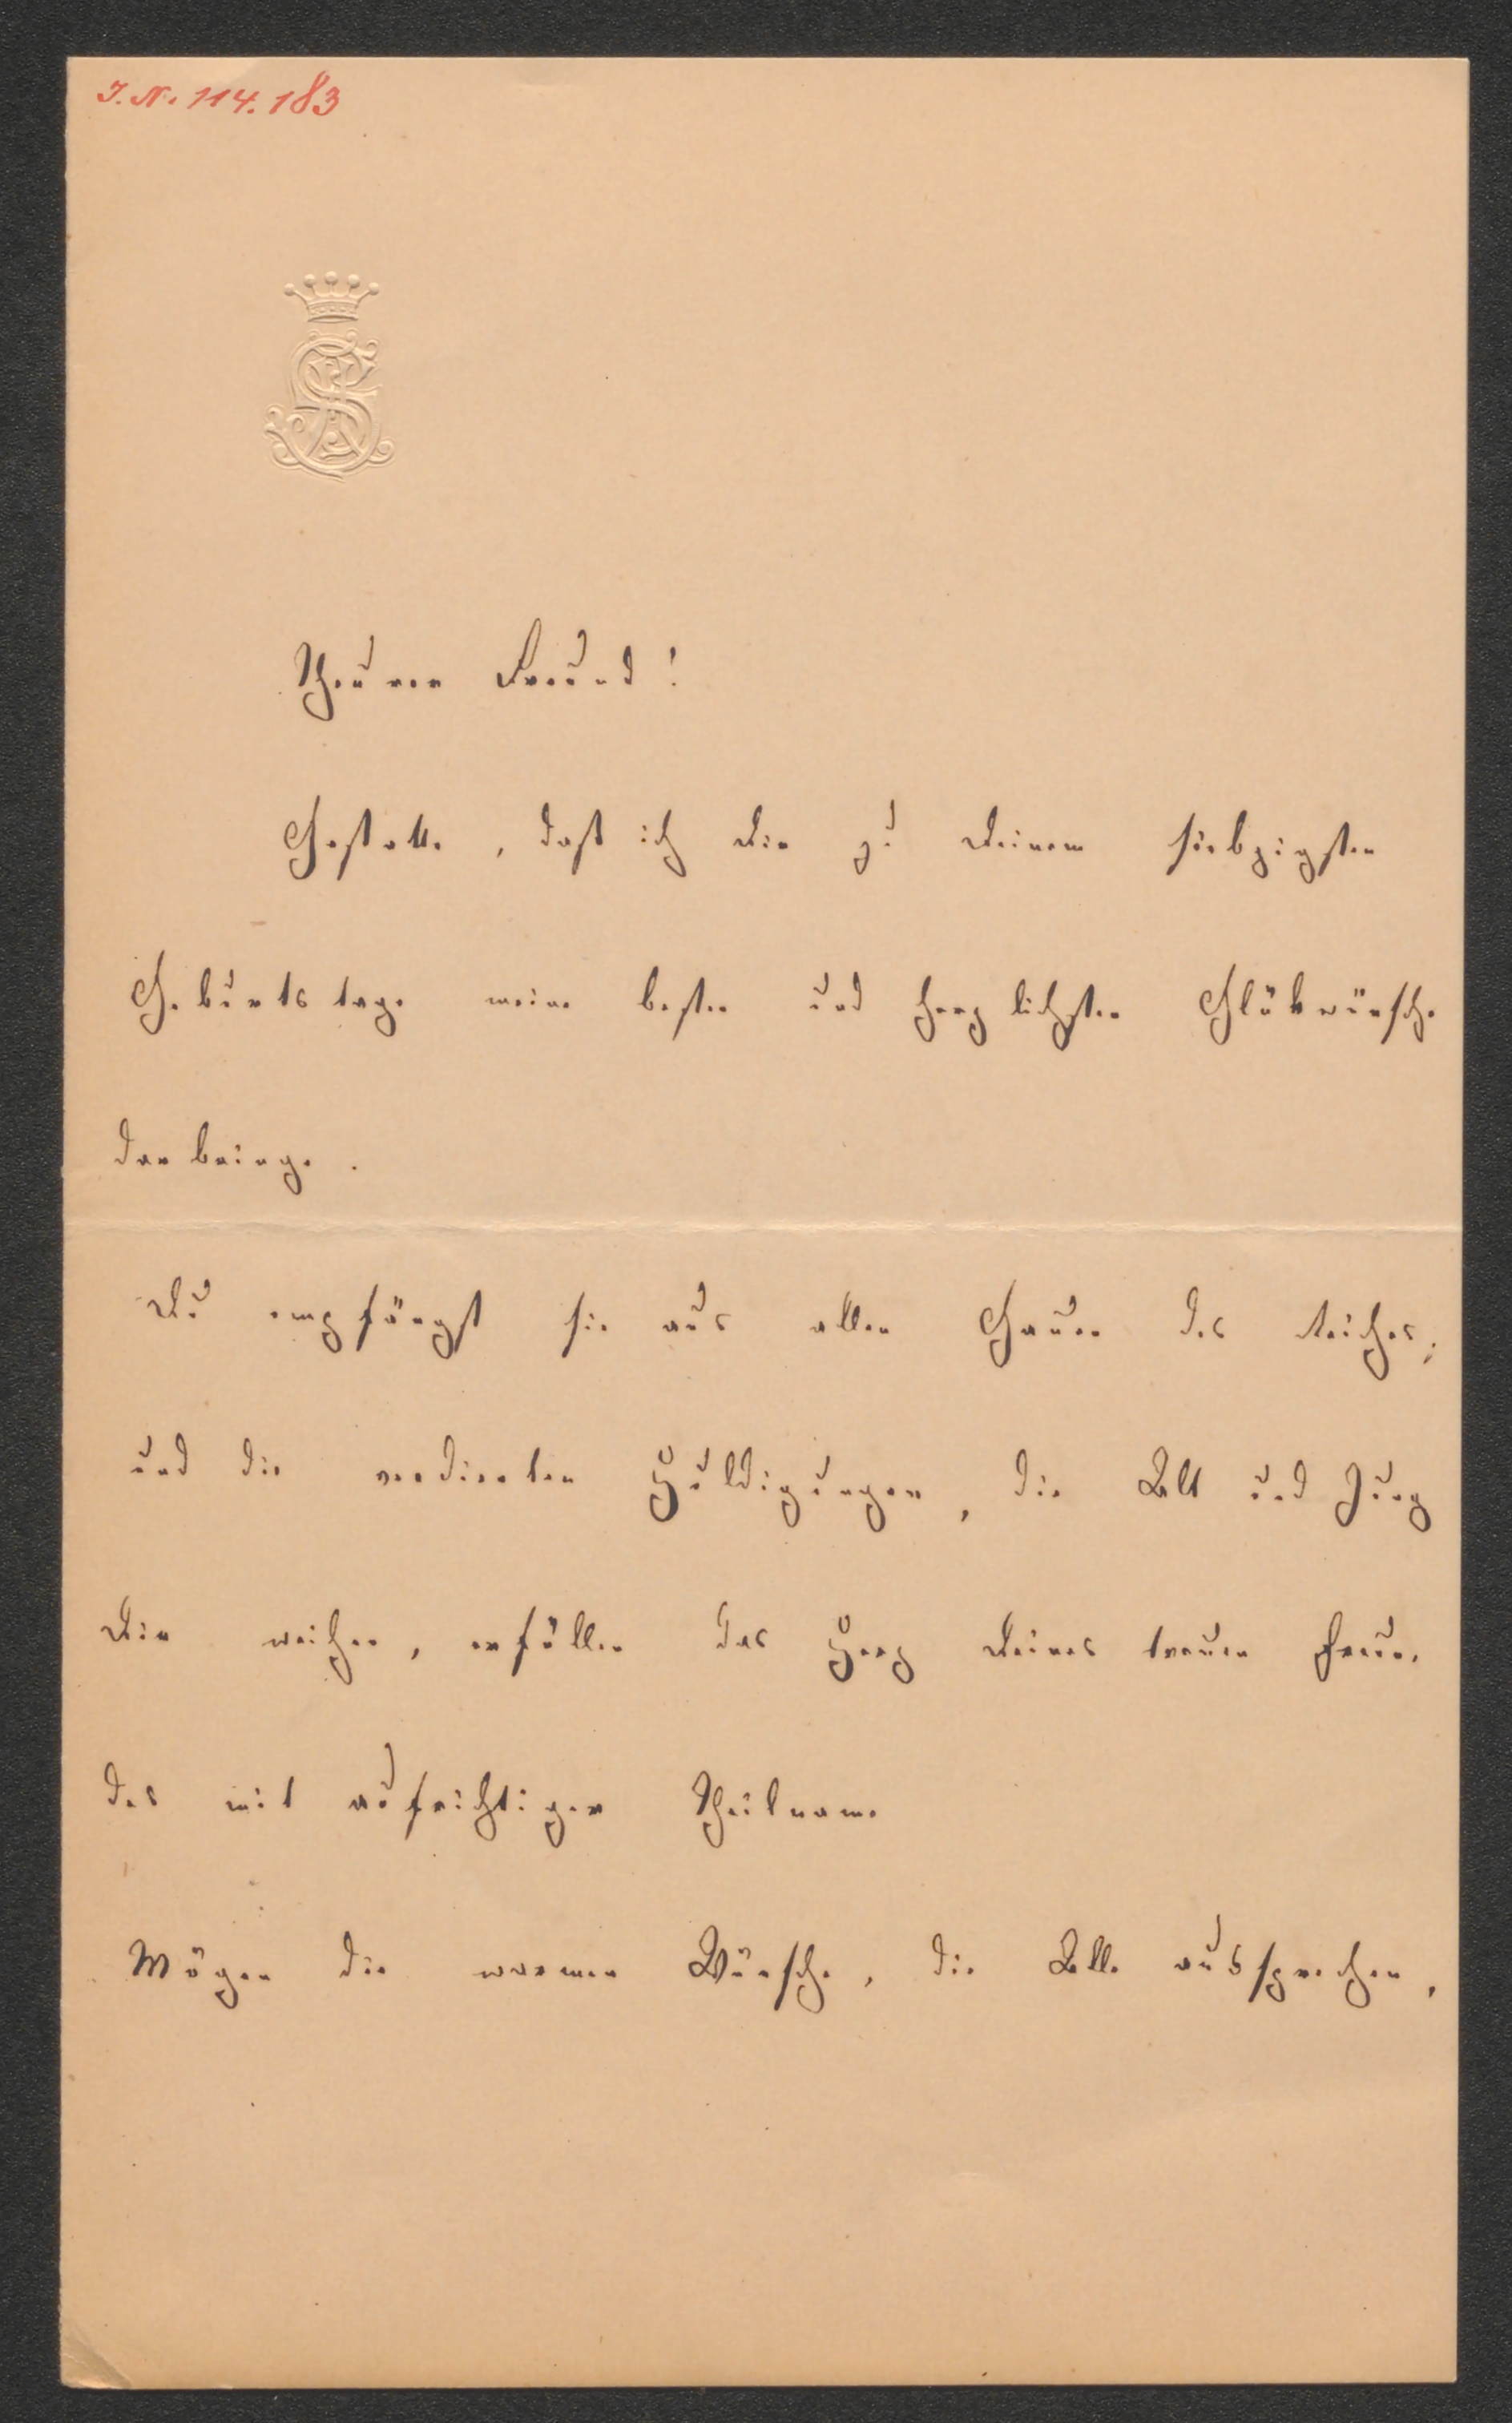 I. N. 114.183
Theurer Freund!
Gestatte, daß ich Dir zu Deinem siebzigsten
Geburtstage meine besten und herzlichsten Glükwünsche
darbringe.
Du empfängst sie aus allen Gauen des Reiches;
und die verdienten Huldigungen, die Alt und Jung
Dir weihen, erfüllen das Herz Deines treuen Freun-
des mit aufrichtiger Theilname
Mögen die warmen Wünsche, die Alle aussprechen,